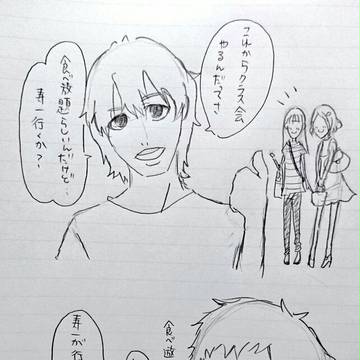 これからクラス会
やるんだってさ
食べ放題らしいんだけど…
寿一行くか?
食べ遊
寿一が行